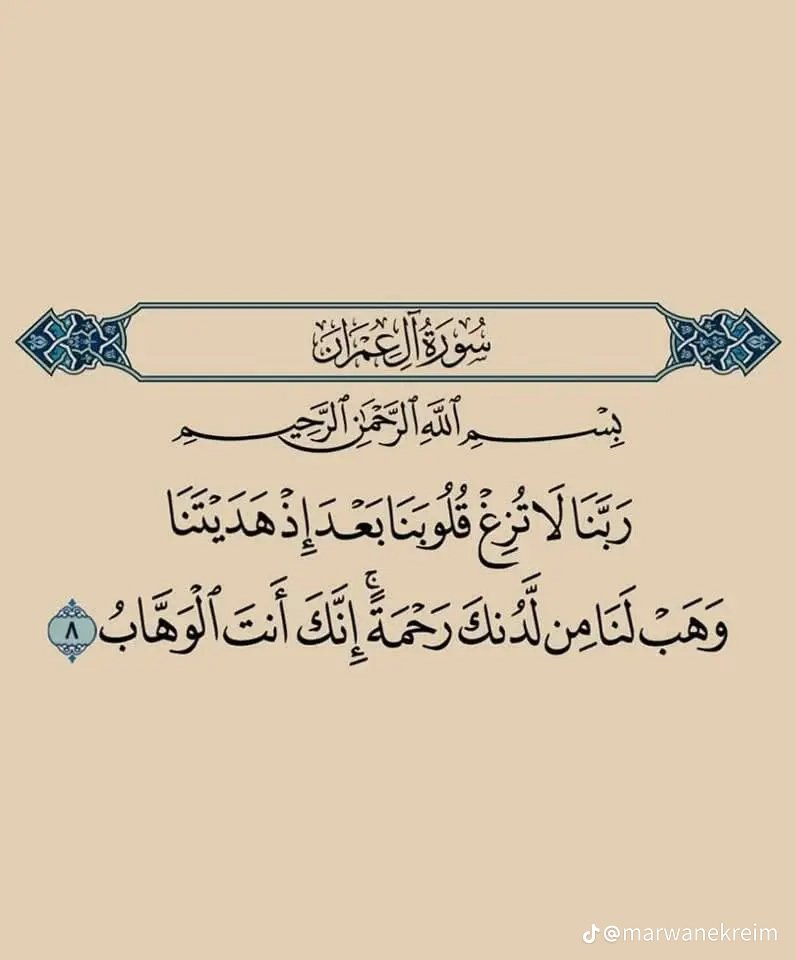 سُورَةُ آلِ عِمْرَانَ
بِسْمِ ٱللَّهِ ٱلرَّحْمَٰنِ ٱلرَّحِيمِ
رَبَّنَا لَا تُزِغْ قُلُوبَنَا بَعْدَ إِذْ هَدَيْتَنَا
وَهَبْ لَنَا مِن لَّدُنكَ رَحْمَةً ۚ إِنَّكَ أَنتَ ٱلْوَهَّابُ ٨
@marwanekreim